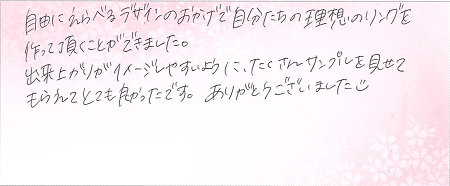 自由にえらべるデザインのおかげで自分たちの理想のリングを
作って頂くことができました。
出来上がりがイメージしやすいように、たくさんサンプルを見せて
もらえてとても良かったです。ありがとうございました☺